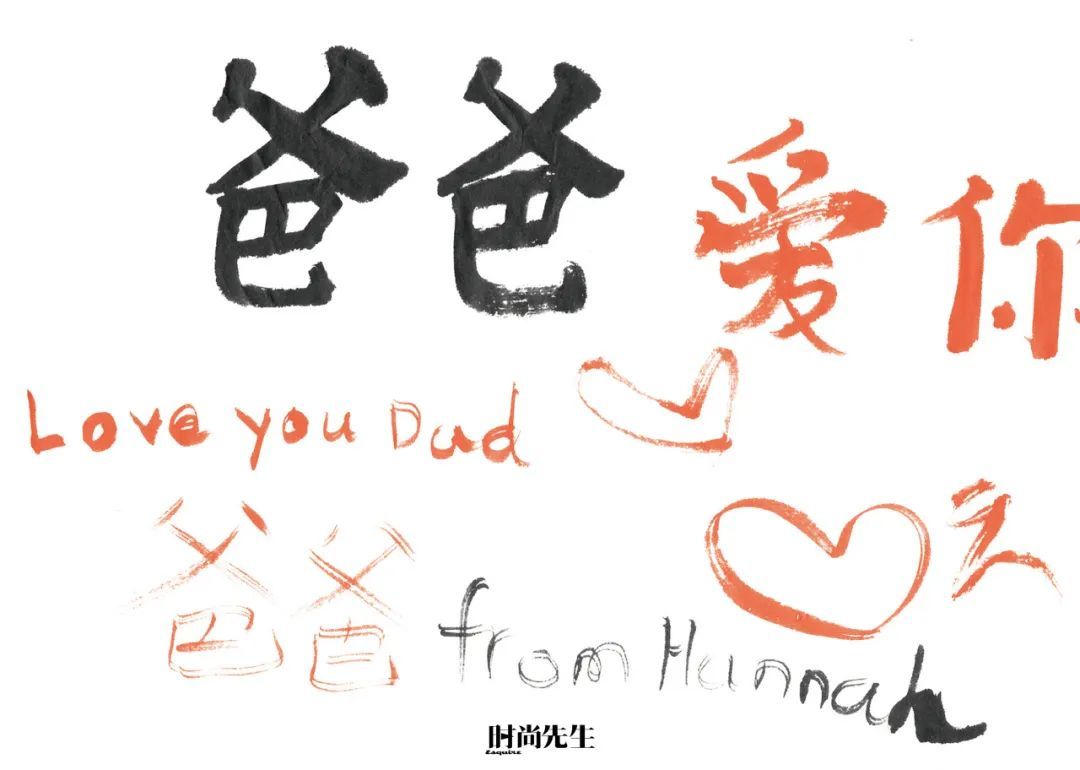 爸爸爱你
Love you Dad
爸爸
from Hannah
时尚先生
Esquire